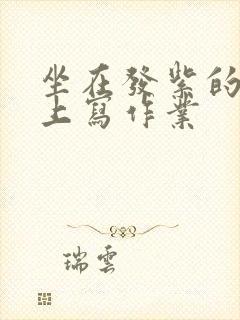 坐在發紫的
上寫作業
瑞雲